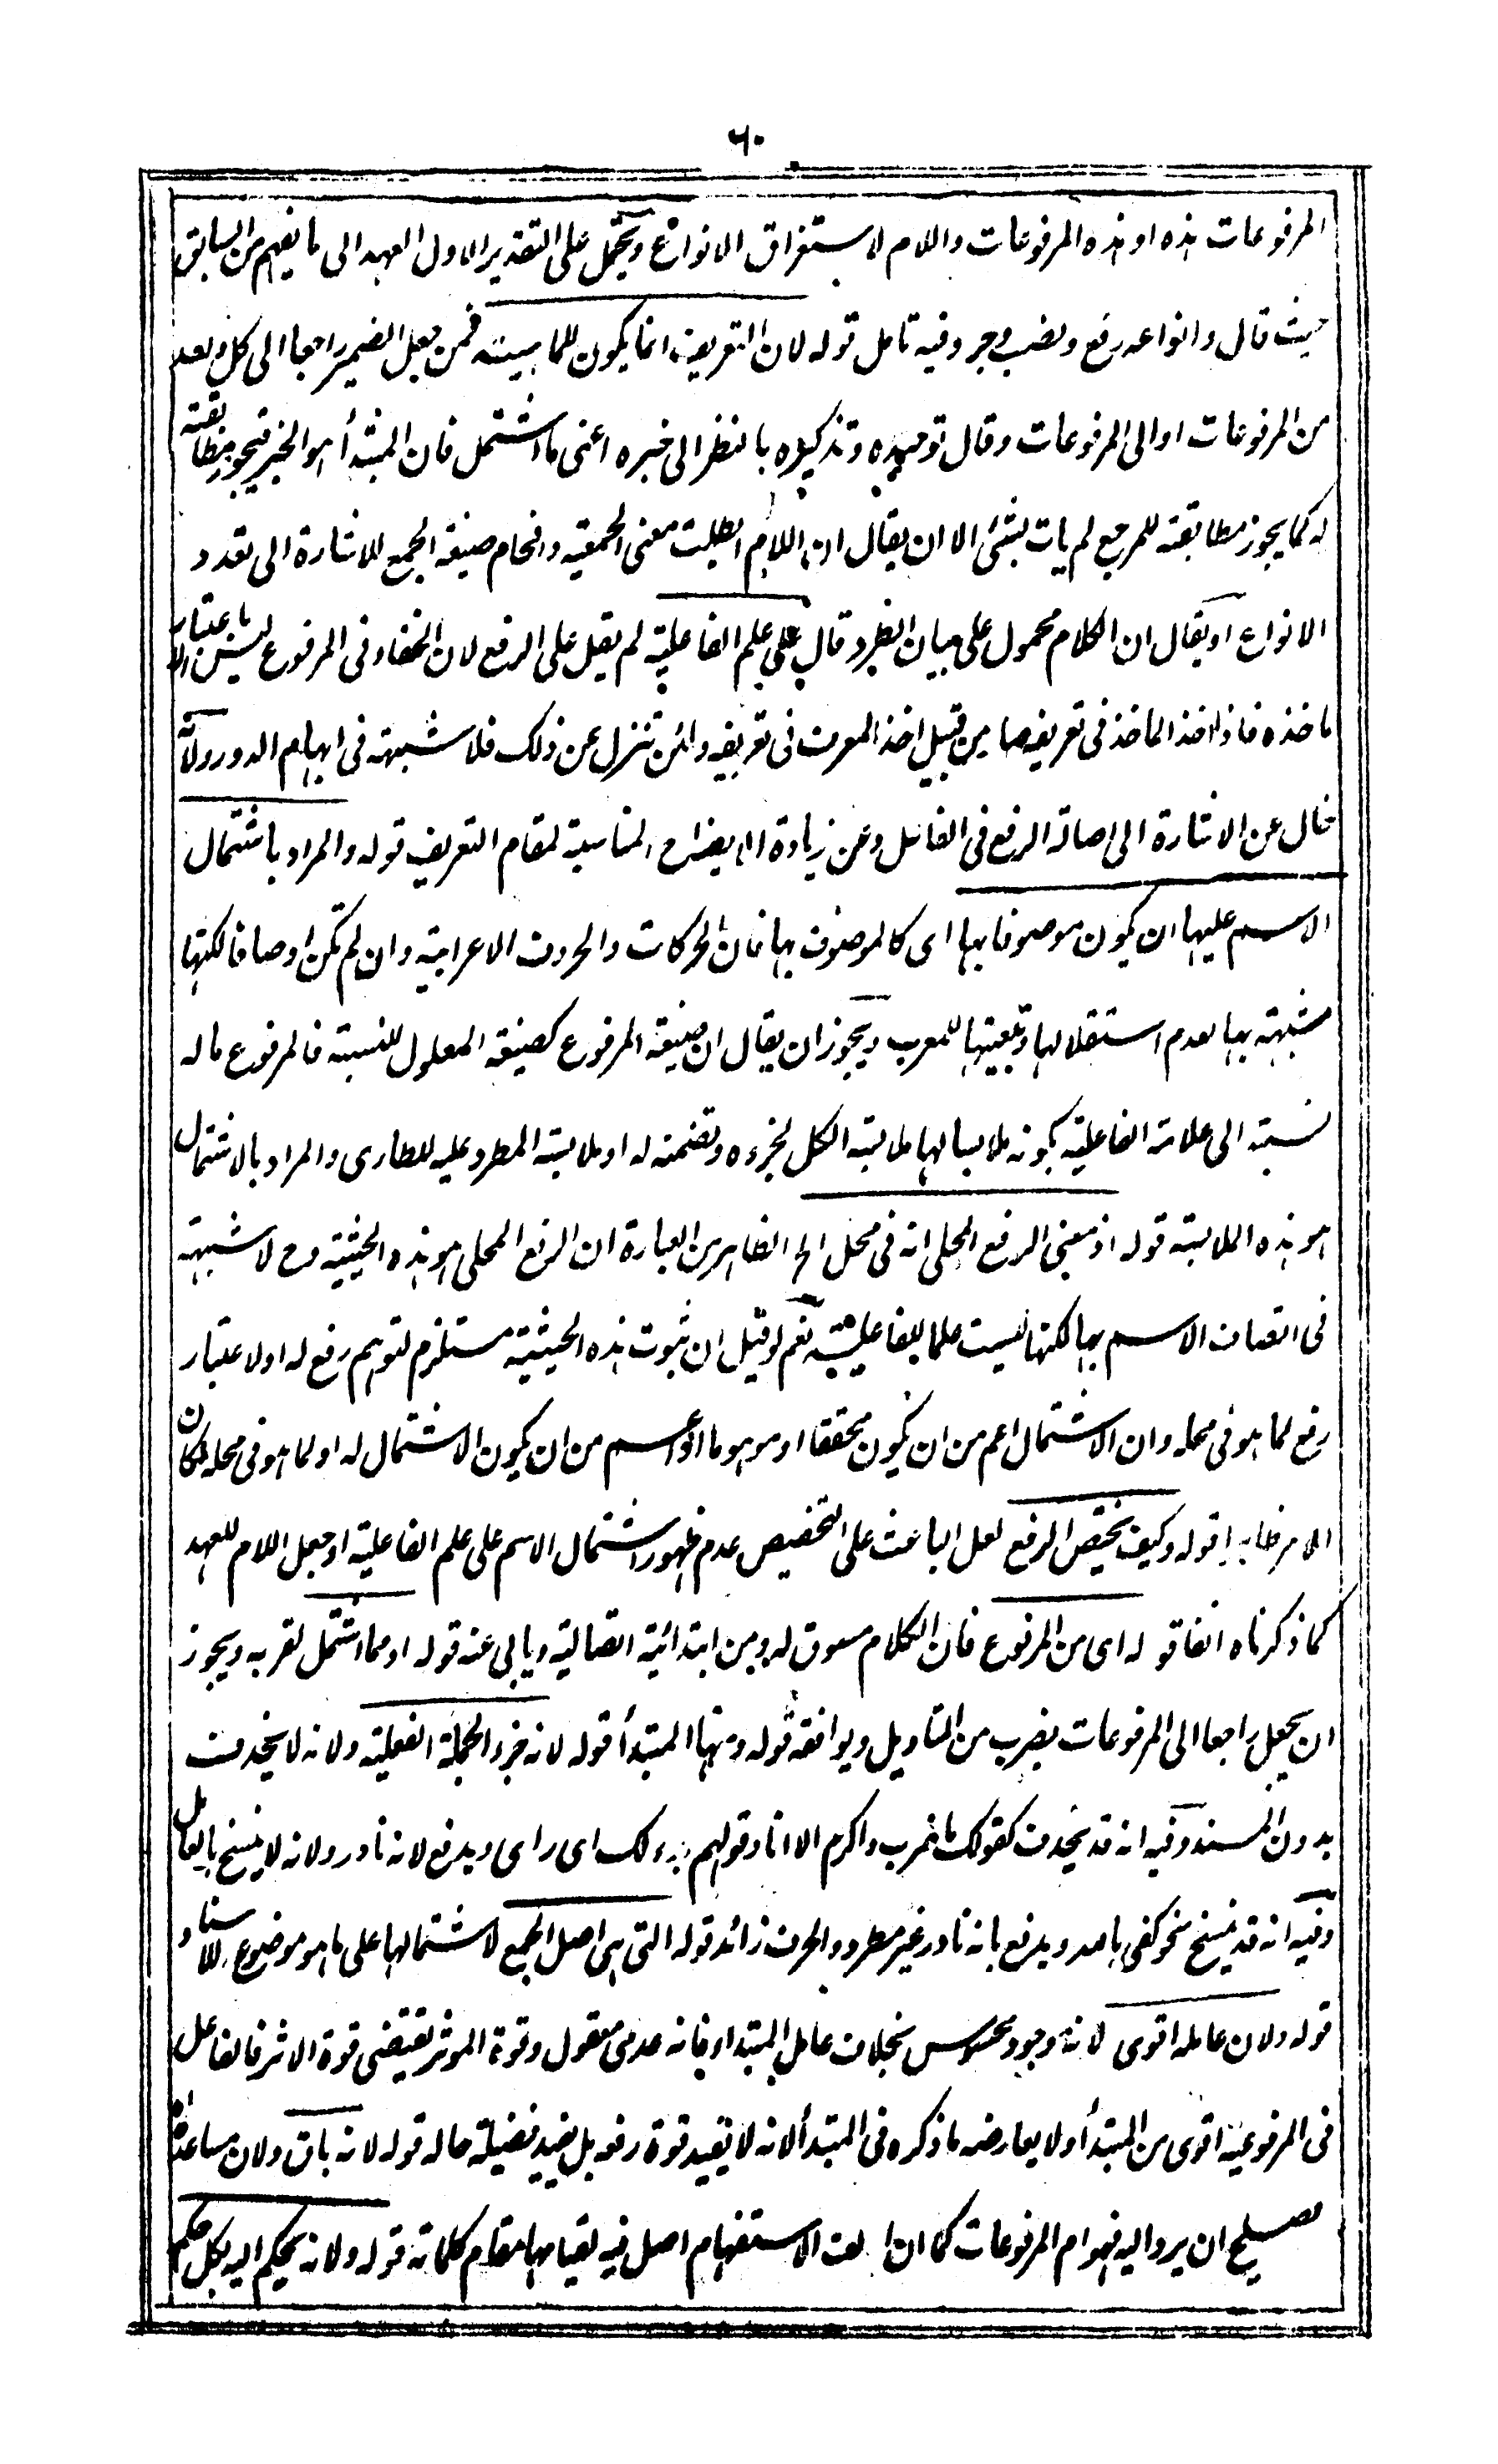 ٦٠
المرفوعات هذه او هذه المرفوعات واللام لاستغراق الانواع ويحتمل على التقدير الاول العهد الى ما يفهم من السابق
حيث قال وانواعه رفع ونصب وجر وفيه تامل قوله لان التعريف انما يكون للماهية فمن جعل الضمير راجعا الى كل واحد
من المرفوعات او الى المرفوعات وقال توحيده وتذكيره بالنظر الى خبره اعنى ما اشتمل فان المبتدأ هو الخبر فيجوز مطابقته
له كما يجوز مطابقته للمرجع لم يات بشئ الا ان يقال ان اللام ابطلت معنى الجمعية واقحام صيغة الجمع للاشارة الى تعدد
الانواع او يقال ان الكلام محمول على بيان الطرد قال على علم الفاعلية لم يقل على الرفع لان الخفاء فى المرفوع ليس الا باعتبار
ماخذه فاذا اخذ الماخذ فى تعريفه صار من قبيل اخذ المعرف فى تعريفه ولئن تنزل عن ذلك فلا شبهة فى ايهام الدور ولانه
خال عن الاشارة الى اصالة الرفع فى الفاعل وعن زيادة الايضاح المناسبة لمقام التعريف قوله والمراد باشتمال
الاسم عليها ان يكون موصوفا بها اى كالموصوف بها فان الحركات والحروف الاعرابية وان لم تكن اوصافا لكنها
مشبهة بها لعدم استقلالها وتبعيتها للمعرب ويجوز ان يقال ان صيغة المرفوع كصيغة المعلول للنسبة فالمرفوع ما له
نسبة الى علامة الفاعلية بكونه ملابسا لها ملابسة الكل لجزءه وتضمنه له او ملابسة المطرو عليه للطارى والمراد بالاشتمال
هو هذه الملابسة قوله اذ معنى الرفع المحلى انه فى محل الخ الظاهر من العبارة ان الرفع المحلى هو هذه الحيثية وح لا شبهة
فى اتصاف الاسم بها لكنها ليست علما للفاعلية نعم لو قيل ان ثبوت هذه الحيثية مستلزم لتوهم رفع له او لاعتبار
رفع لما هو فى محله وان الاشتمال اعم من ان يكون محققا او موهوما او اعم من ان يكون الاشتمال له او لما هو فى محله لكان
الامر ظاهرا قوله وكيف يختص الرفع لعل الباعث على التخصيص عدم ظهور اشتمال الاسم على علم الفاعلية او جعل اللام للعهد
كما ذكرناه انفا قوله اى من المرفوع فان الكلام مسوق له ومن ابتدائية اتصالية ويابى عنه قوله او مما اشتمل لقربه ويجوز
ان يجعل راجعا الى المرفوعات بضرب من التاويل ويوافقه قوله ومنها المبتدأ قوله لانه جزء الجملة الفعلية ولانه لا يحذف
بدون المسند وفيه انه قد يحذف كقولك ما ضرب واكرم الا انا وقولهم بدء لك اى راى ويدفع لانه نادر ولانه لا ينسخ بالعامل
وفيه انه قد ينسخ نحو كفى بالله ويدفع بانه نادر غير مطرد والحرف زائد قوله التى هى اصل الجمع لاشتمالها على ما هو موضوع للاسناد
قوله ولان عامله اقوى لانه وجود محسوس بخلاف عامل المبتدأ فانه عدمى معقول وقوة الموثر يقتضى قوة الاثر فالفاعل
فى المرفوعية اقوى من المبتدأ ولا يعارضه ما ذكره فى المبتدأ لانه لا يفيد قوة رفعه بل يفيد فضيلة حاله قوله لانه باق ولان مساعدته
يصلح ان يرد اليه فهو ام المرفوعات كما ان الف الاستفهام اصل فيه لقيامها مقام كلماته قوله ولانه يحكم اليه بكل حكم